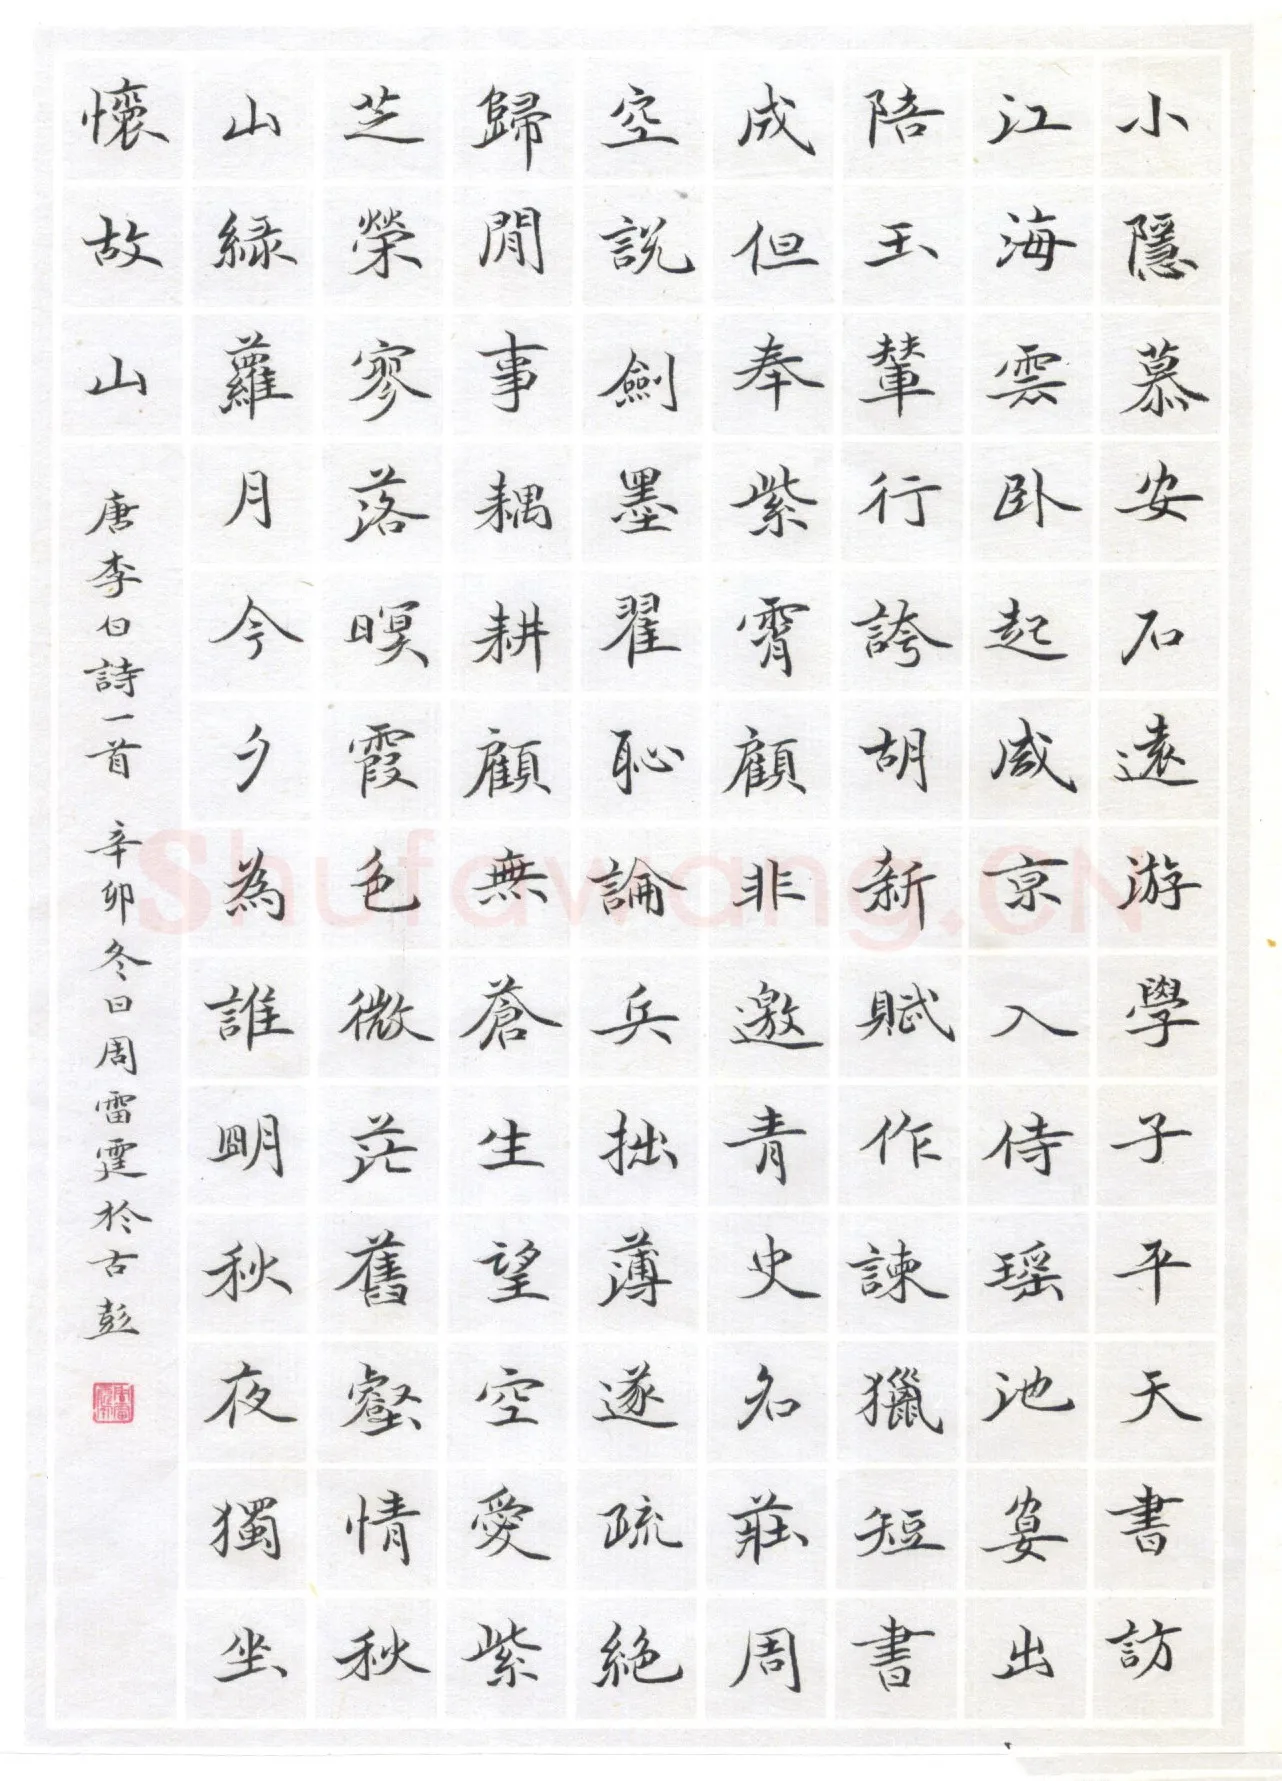 小隱慕安石遠游學子平天書訪
江海雲卧起咸京入侍瑶池宴出
陪玉輦行胡誇新賦作諫獵短書
成但奉紫霄顧非邀青史名莊周
空說劍墨翟恥論兵拙薄遂疏絶
歸閒事耦耕顧無蒼生望空愛紫
芝榮寥落暝霞色微茫舊壑情秋
山緑蘿月今夕為誰明秋夜獨坐
懷故山
唐李白詩一首 辛卯冬日周雷霆於古彭
Shufawang.CN